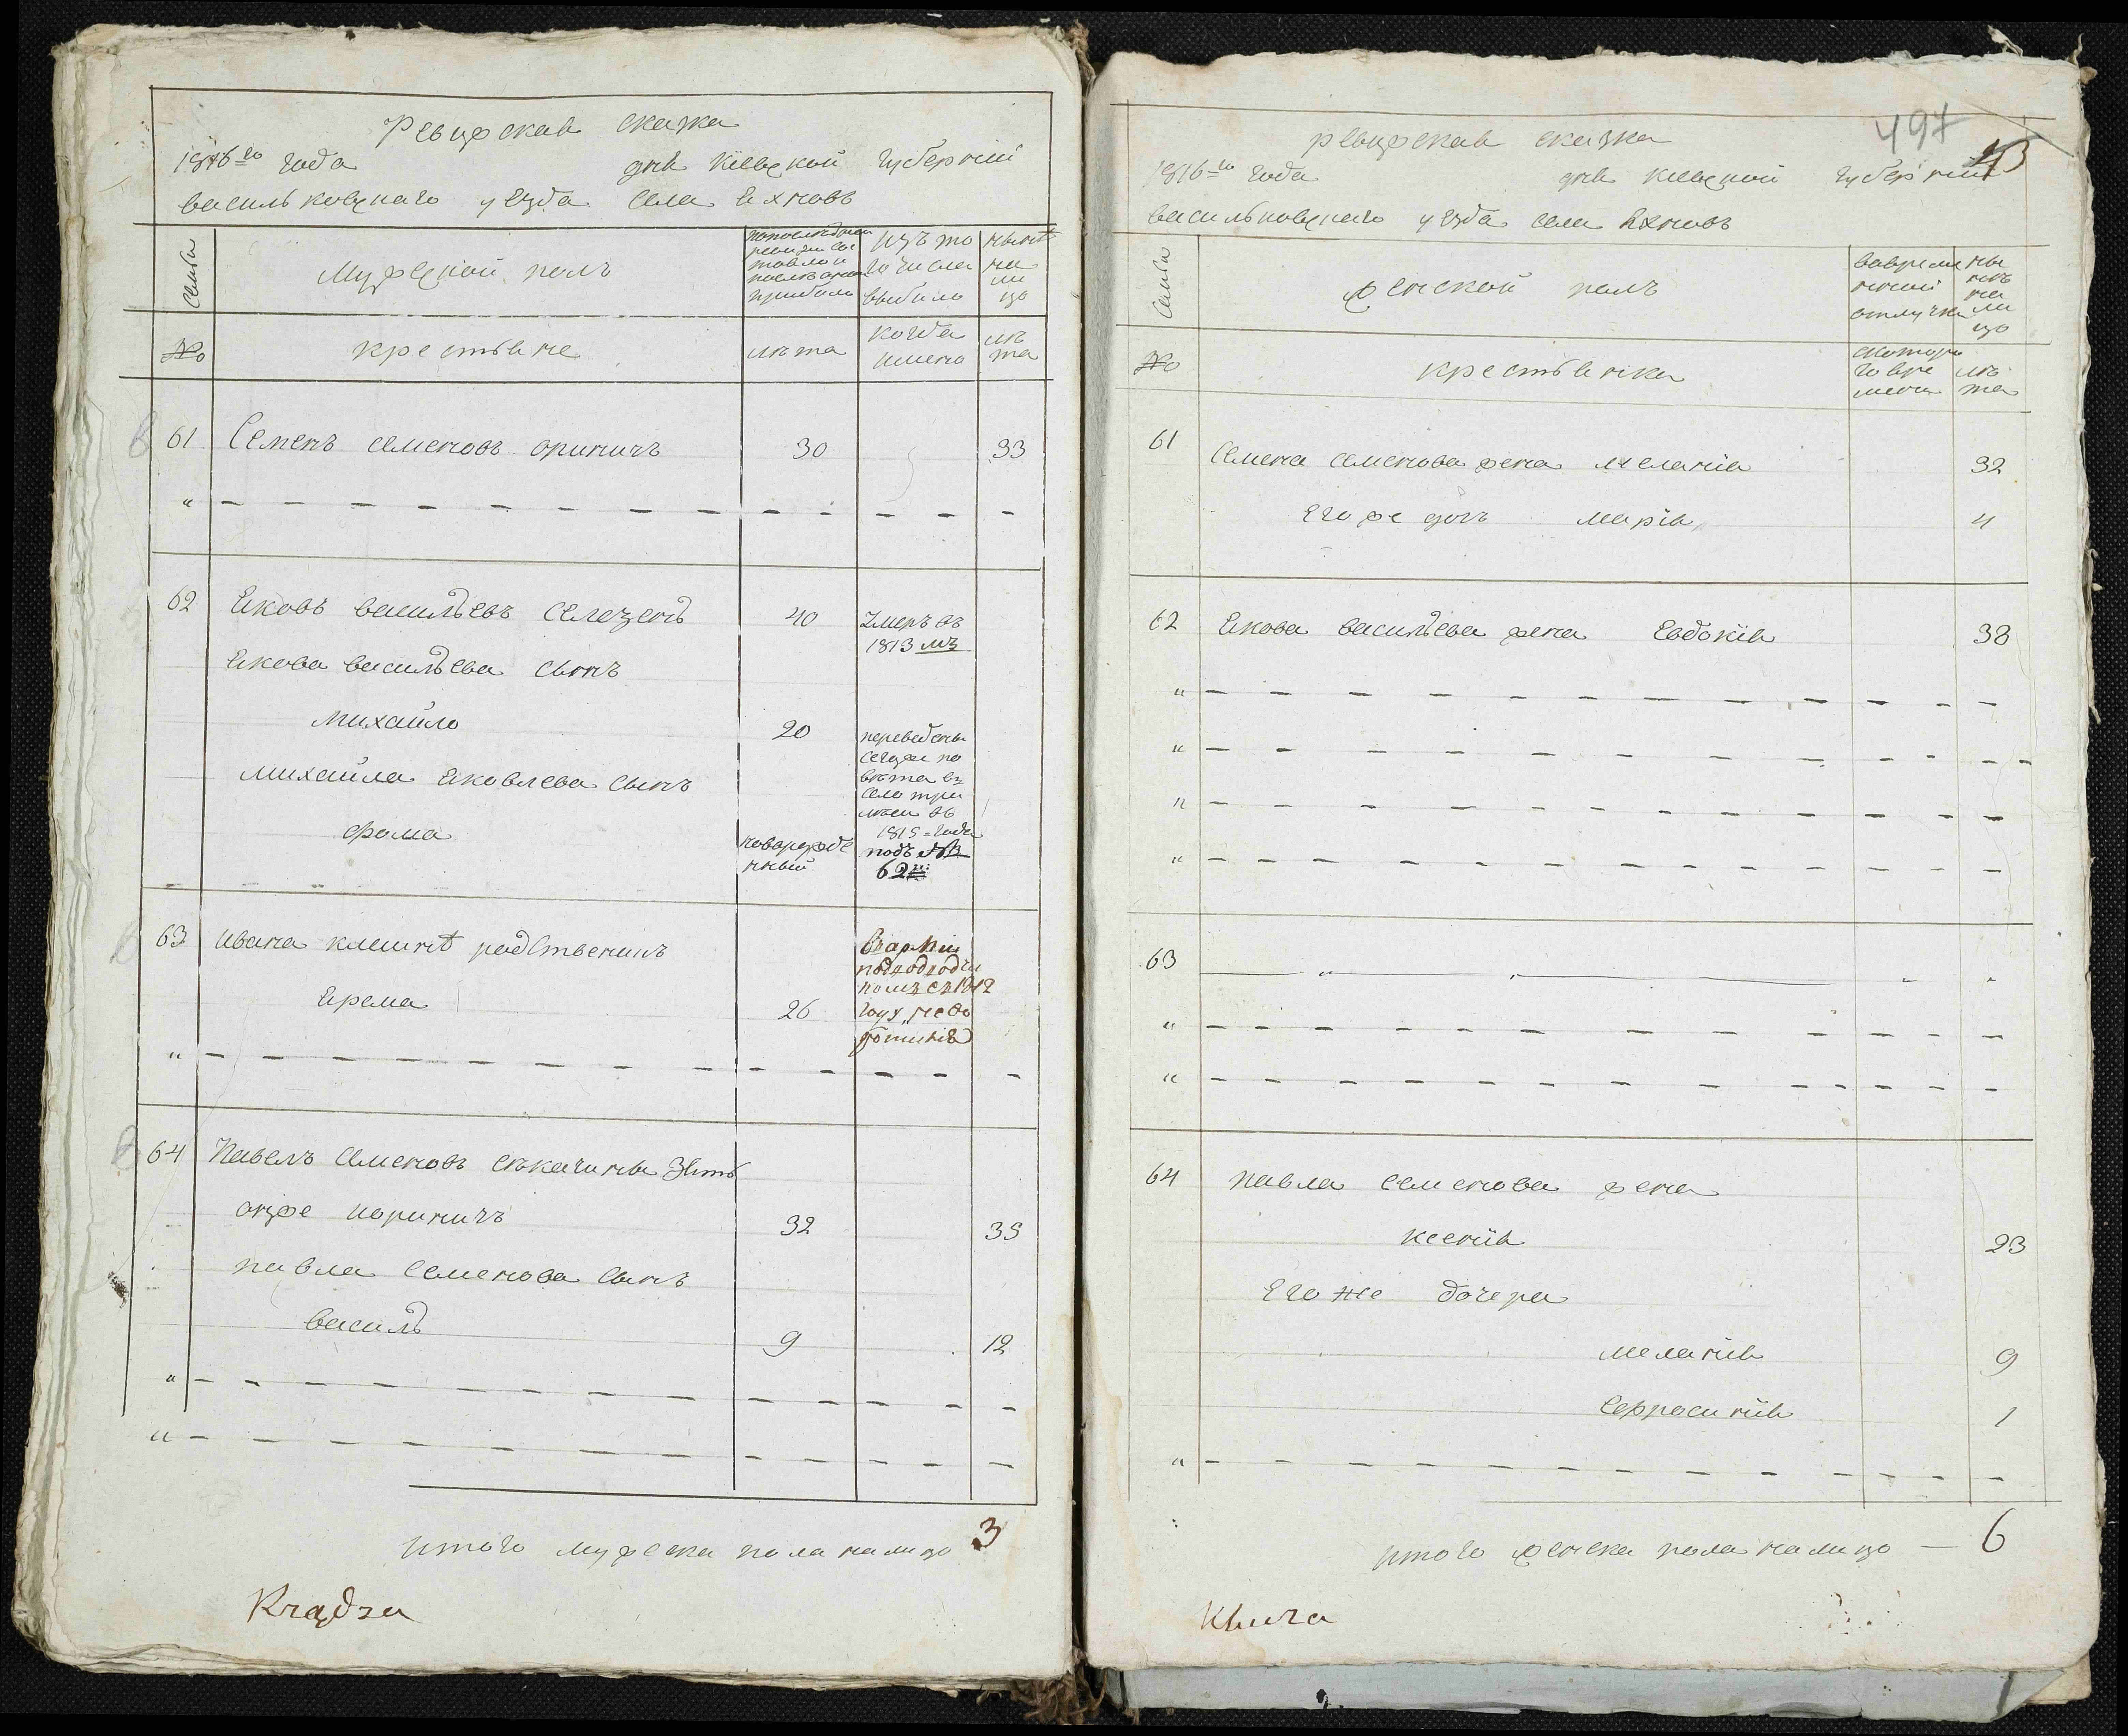 Ревизская сказка
1816го года дня Киевской губернии
васильковскаго уезда села Яхновъ
Семьи
Мужеской полъ
по последней ревизии состояло и после оной прибыло
изъ того числа выбыло
ныне на лицо
№
крестьяне
лѣта
когда имено
лѣта
61 Семенъ семеновъ ориничъ 30 33
62 Яковъ васильевъ Селезень 40 Умеръ въ 1813 мъ
Якова васильева сынъ
михайло 20
переведены
сегоже по
вѣта въ
село три
лѣси въ
1815 года
подъ №
62
михайла Яковлева сынъ
фома новорожде
нный
63 ивана клешнѣ родственикъ
Ярема 26
64 Павелъ Семеновъ секачины Зять
онже юриничъ 32 35
павла Семенова сынъ
василь 9 12
итого мужеска пола налицо 3
Rządzca
497
43
ревизская сказка
1816го года дня киевской губернии
васильковскаго уезда села Яхновъ
Семьи
женской полъ
вовременной отлучке
ныне на лицо
№
крестьянки
с котораго времени
лѣта
61 Семена семенова жена меланія 32
Егоже дочь марія 4
62 Якова васильева жена Евдокія 38
63
64 павла семенова жена
ксенія 23
Егоже дочери
меланія 9
Сефросинія 1
итого женска пола налицо — 6